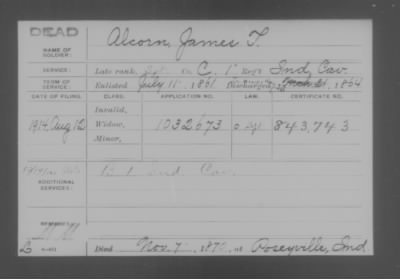 DEAD
Alcorn, James T.
NAME OF
SOLDIER:
SERVICE: Late rank, Sgt. Co. C, 1" Reg't Ind. Cav.
TERM OF
SERVICE: Enlisted July 11", 1861 Discharged, 1864
DATE OF FILING. CLASS. APPLICATION NO. LAW. CERTIFICATE NO.
Invalid,
1914, Aug 12 Widow, 1032673 843,743
Minor,
ADDITIONAL
SERVICES: Ind. Cav.
Died Nov. 7", 1870, at Poseyville, Ind